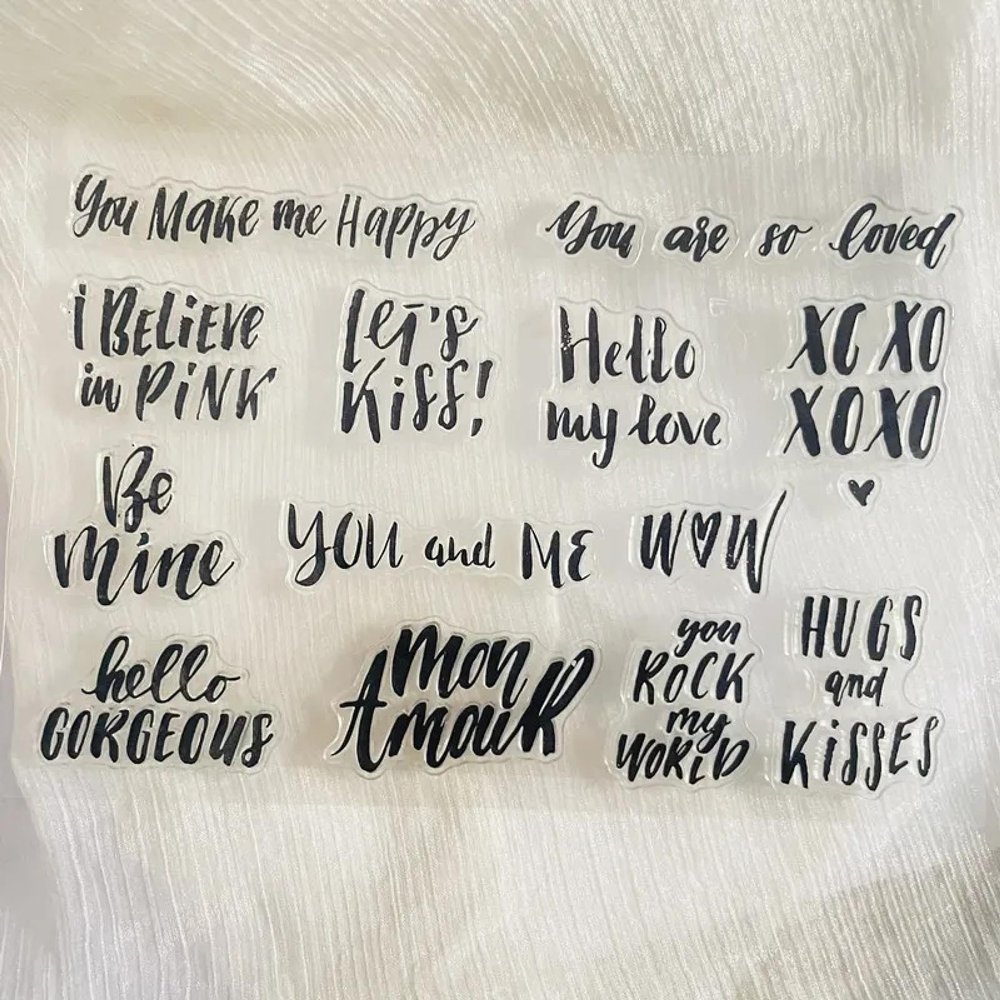 You Make me Happy
You are so loved
i BELiEVE
in PiNK
LET'S
KiSS!
Hello
my love
XOXO
XOXO
Be
mine
YOU and ME
WOW
hello
GORGEOUS
mon
Amour
you
ROCK
my
WORLD
HUGS
and
KiSSES